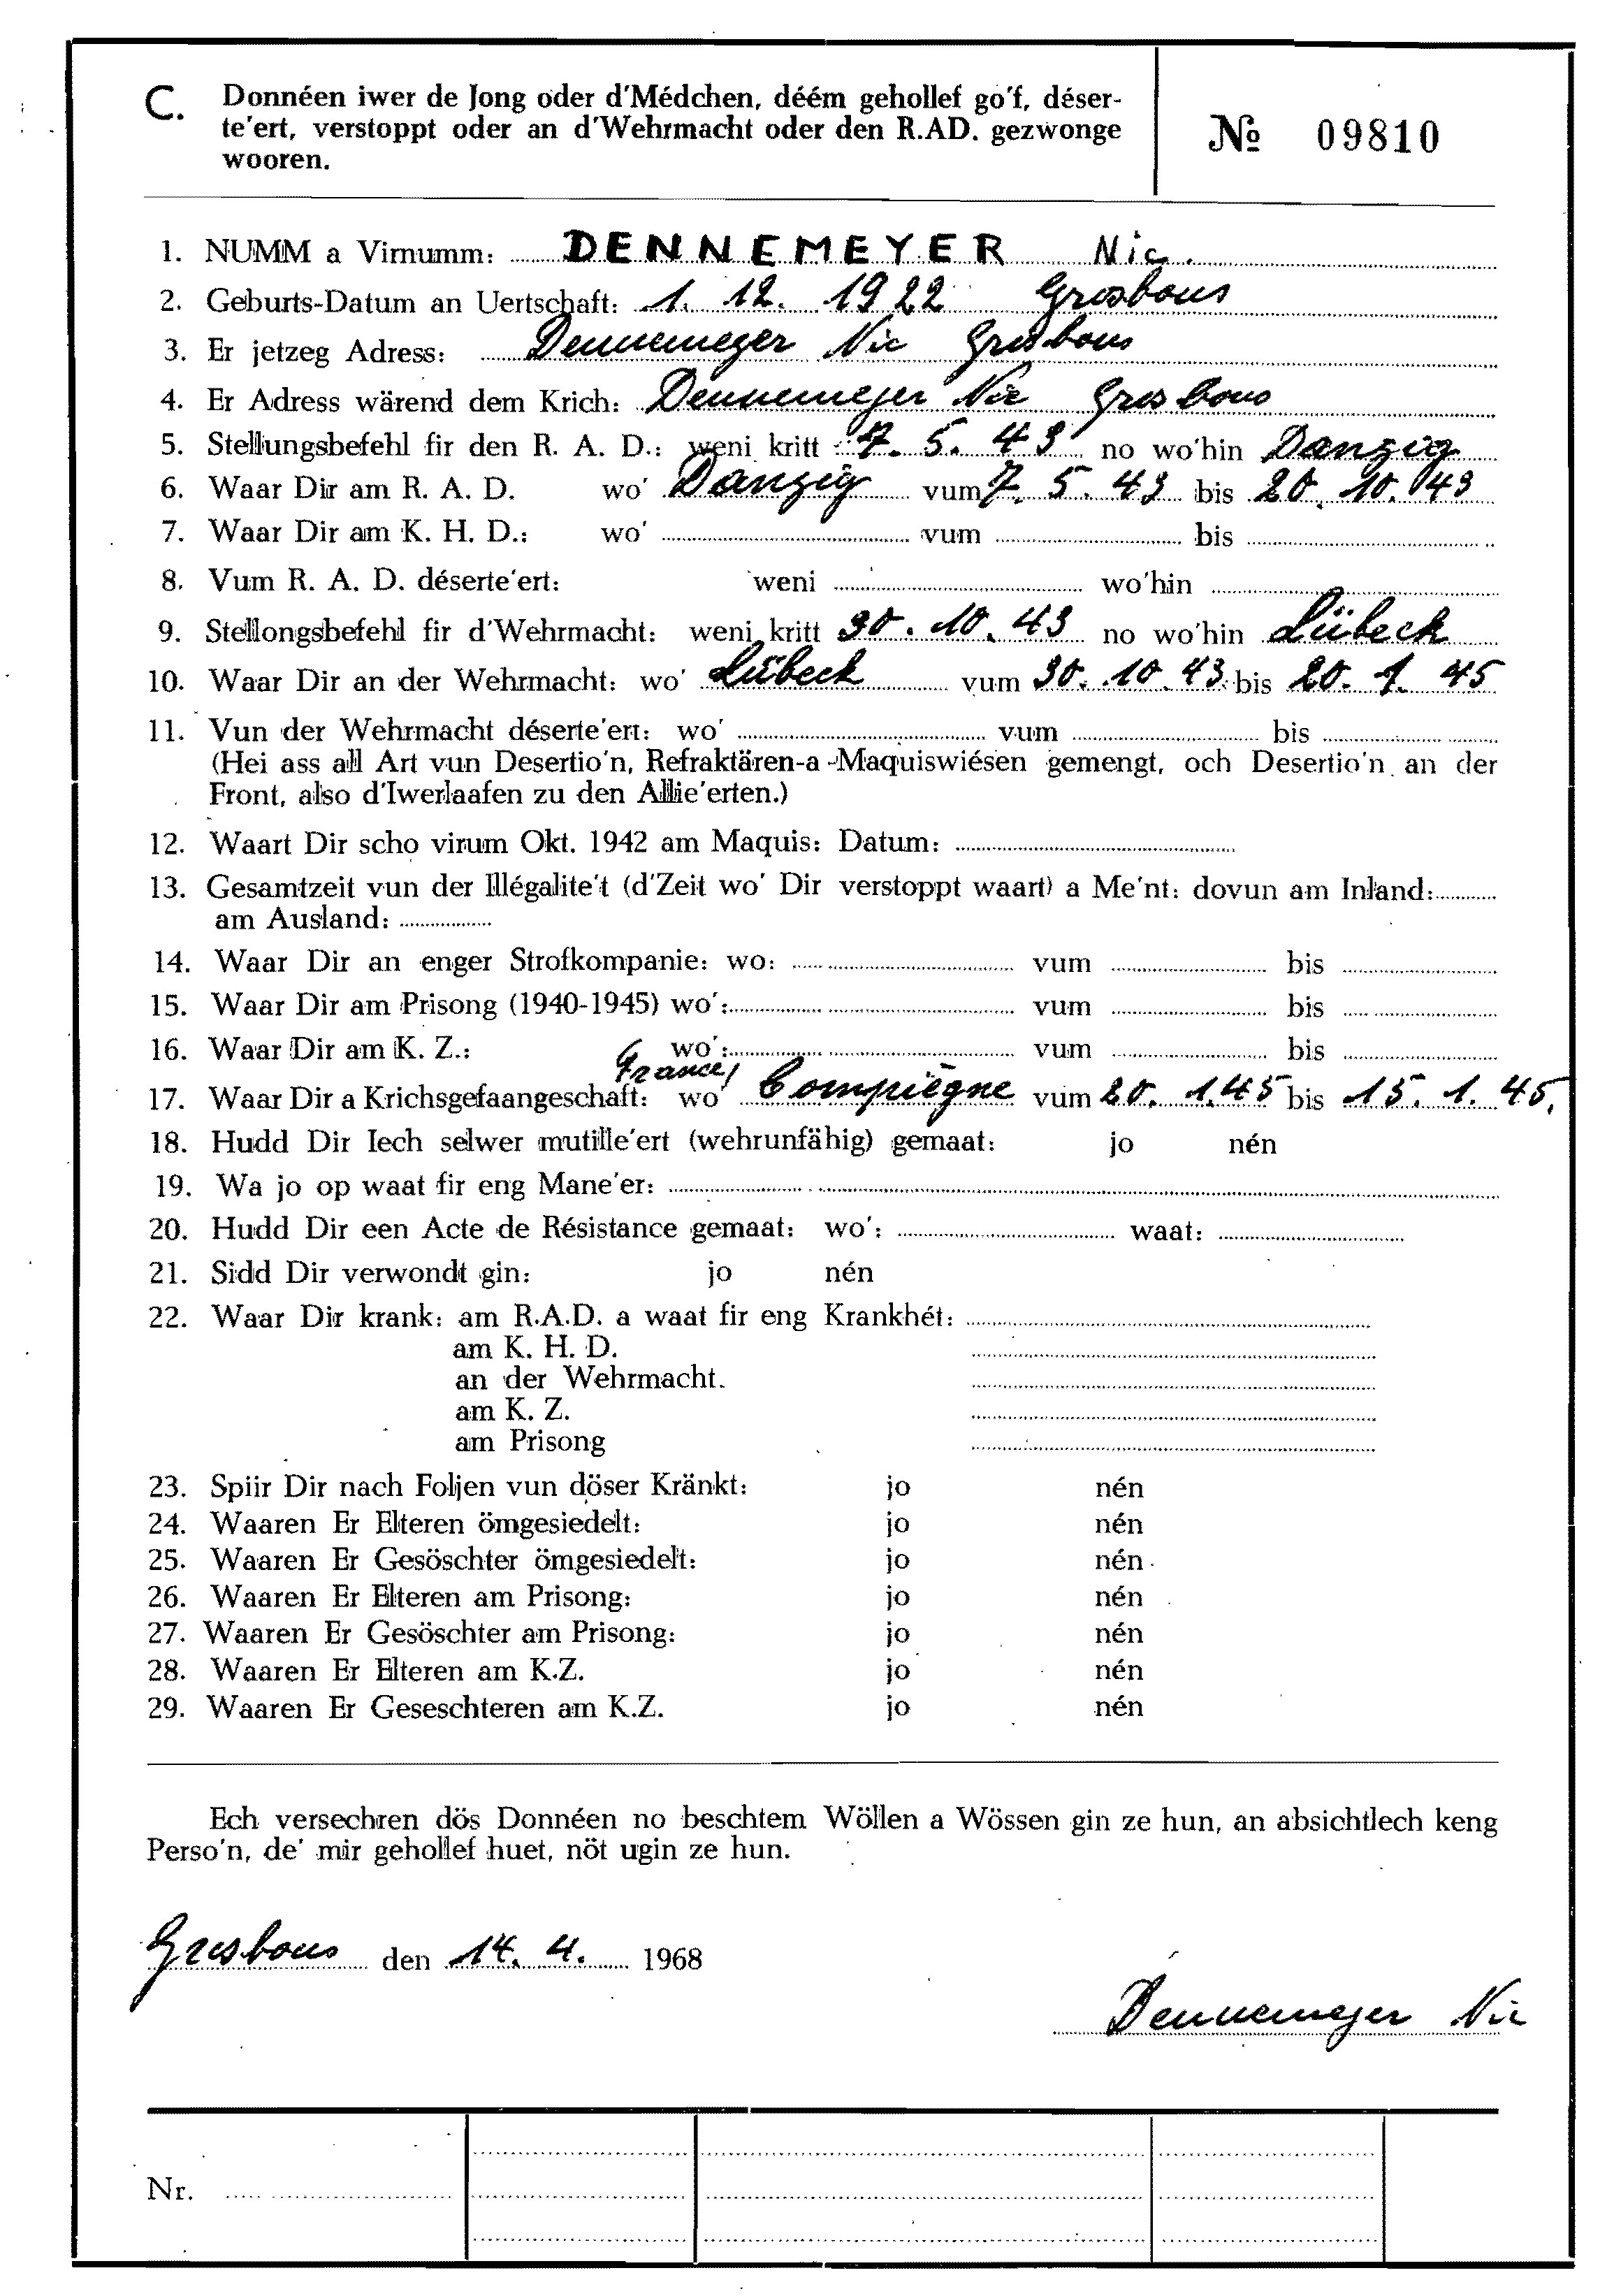 C. Donnéen iwer de Jong oder d'Médchen, déém gehollef go'f, déser-
te'ert, verstoppt oder an d'Wehrmacht oder den R.AD. gezwonge
wooren.
№ 09810
1. NUMM a Virnumm: DENNEMEYER Nic.
2. Geburts-Datum an Uertschaft: 1. 12. 1922 Grosbous
3. Er jetzeg Adress: Dennemeyer Nic Grosbous
4. Er Adress wärend dem Krich: Dennemeyer Nic Grosbous
5. Stellungsbefehl fir den R. A. D.: weni kritt 7. 5. 43 no wo'hin Danzig
6. Waar Dir am R. A. D. wo' Danzig vum 7. 5. 43 bis 20. 10. 43
7. Waar Dir am K. H. D.: wo' vum bis
8. Vum R. A. D. déserte'ert: weni wo'hin
9. Stellongsbefehl fir d'Wehrmacht: weni kritt 30. 10. 43 no wo'hin Lübeck
10. Waar Dir an der Wehrmacht: wo' Lübeck vum 30. 10. 43 bis 20. 1. 45
11. Vun der Wehrmacht déserte'ert: wo' vum bis
(Hei ass all Art vun Desertio'n, Refraktären-a-Maquiswiésen gemengt, och Desertio'n an der
Front, also d'Iwerlaafen zu den Allie'erten.)
12. Waart Dir scho virum Okt. 1942 am Maquis: Datum:
13. Gesamtzeit vun der Illégalite't (d'Zeit wo' Dir verstoppt waart) a Me'nt: dovun am Inland:
am Ausland:
14. Waar Dir an enger Strofkompanie: wo: vum bis
15. Waar Dir am Prisong (1940-1945) wo': vum bis
16. Waar Dir am K. Z.: wo': vum bis
France
17. Waar Dir a Krichsgefaangeschaft: wo' Compiègne vum 20. 1.45 bis 15. 1. 45.
18. Hudd Dir Iech selwer mutille'ert (wehrunfähig) gemaat: jo nén
19. Wa jo op waat fir eng Mane'er:
20. Hudd Dir een Acte de Résistance gemaat: wo': waat:
21. Sidd Dir verwondt gin: jo nén
22. Waar Dir krank: am R.A.D. a waat fir eng Krankhét:
am K. H. D.
an der Wehrmacht.
am K. Z.
am Prisong
23. Spiir Dir nach Foljen vun döser Kränkt: jo nén
24. Waaren Er Elteren ömgesiedelt: jo nén
25. Waaren Er Gesöschter ömgesiedelt: jo nén
26. Waaren Er Elteren am Prisong: jo nén
27. Waaren Er Gesöschter am Prisong: jo nén
28. Waaren Er Elteren am K.Z. jo nén
29. Waaren Er Geseschteren am K.Z. jo nén
Ech versechren dös Donnéen no beschtem Wöllen a Wössen gin ze hun, an absichtlech keng
Perso'n, de' mir gehollef huet, nöt ugin ze hun.
Grosbous den 14. 4. 1968
Dennemeyer Nic
Nr.